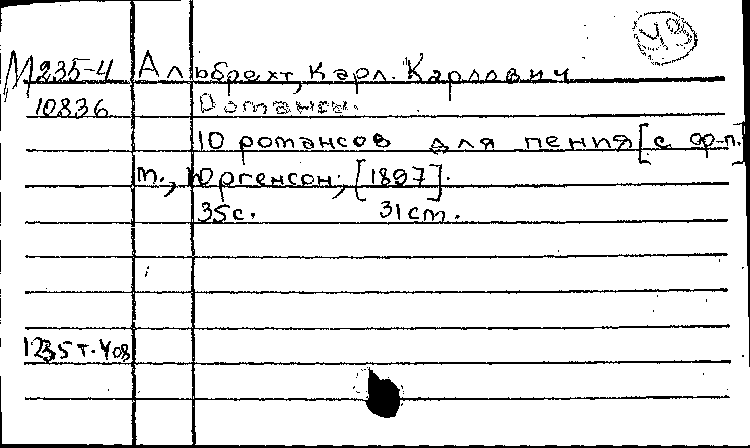 УЗ
М235-4 Альбрехт, Карл Карлович
10836 Романсы.
10 романсов для пения [с ф.-п.]
М., Юргенсон, [1897].
35с. 31см.
1235т.408